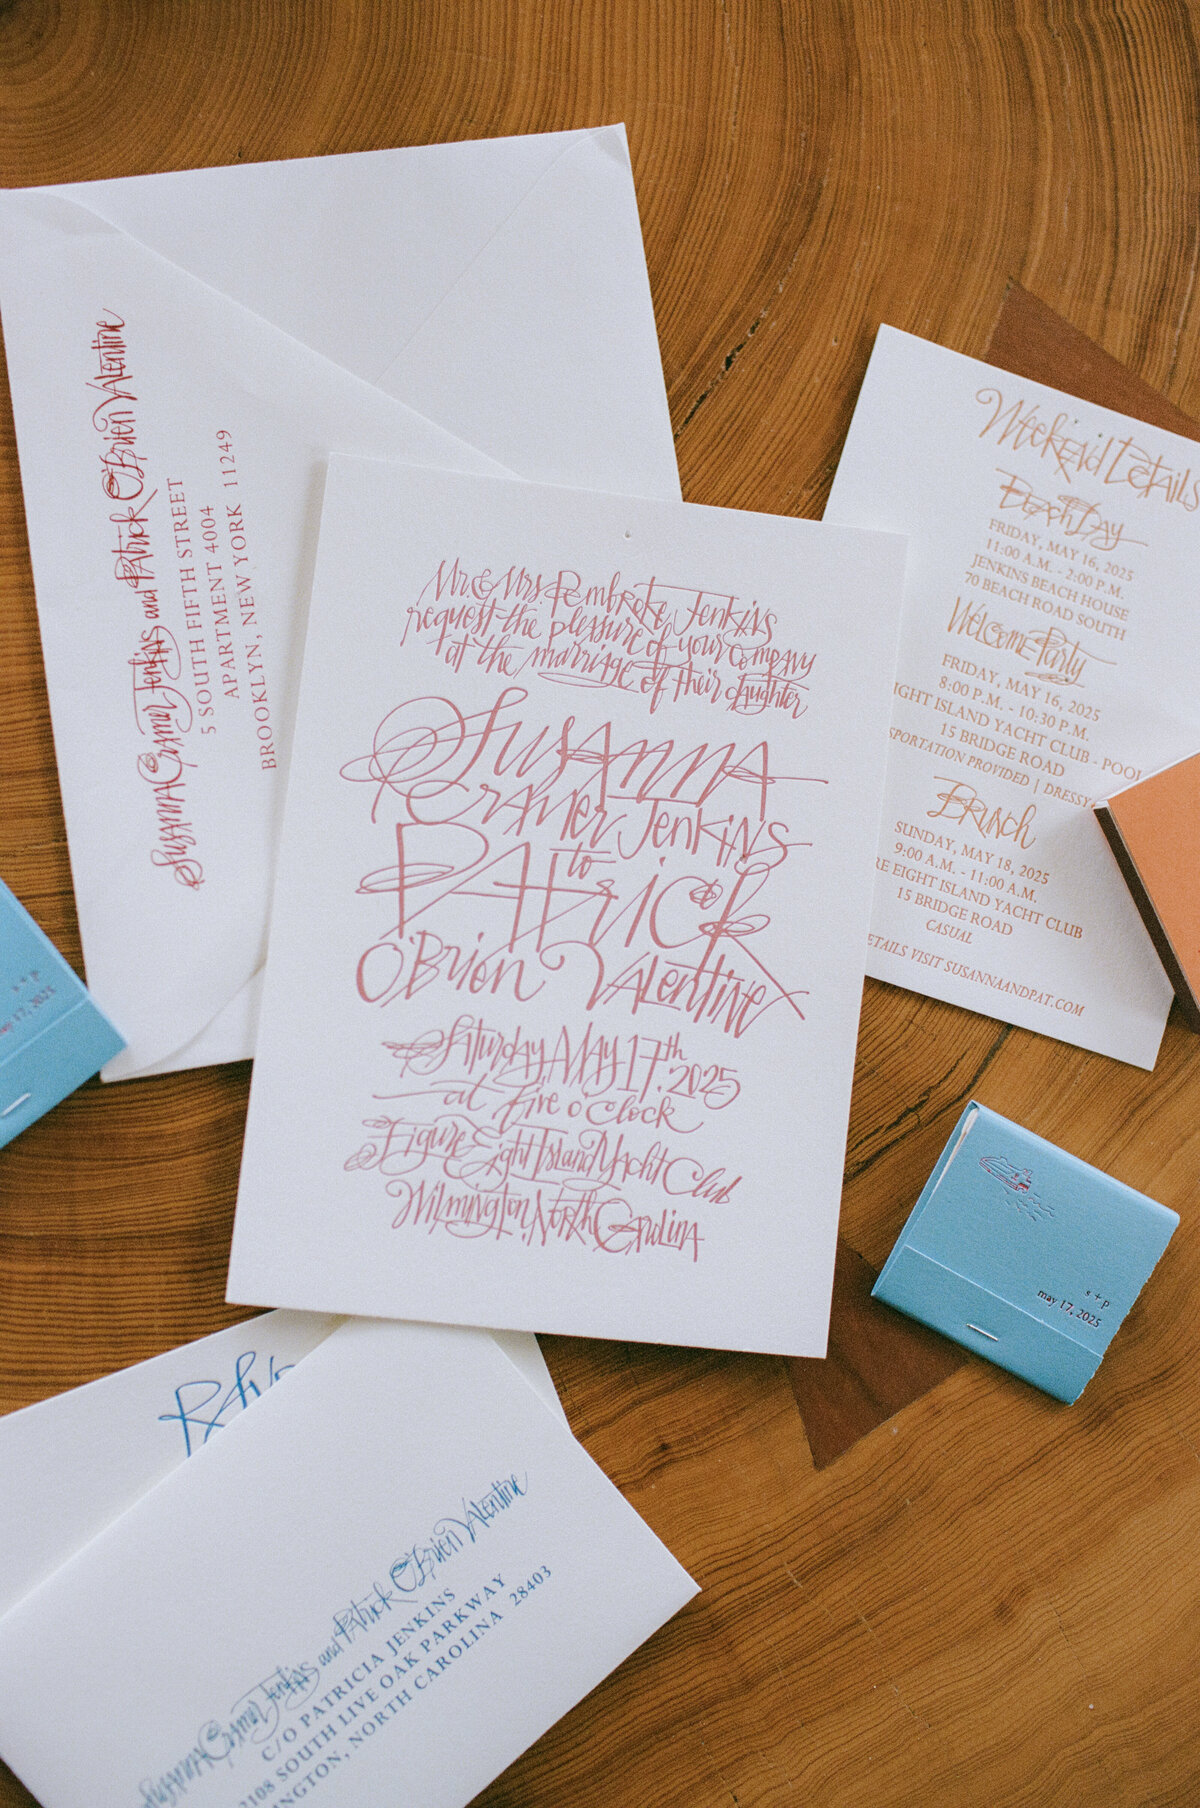 Susanna Cramer Jenkins and Patrick O'Brien Valentine
5 SOUTH FIFTH STREET
APARTMENT 4004
BROOKLYN, NEW YORK 11249
Mr & Mrs Pembroke Jenkins
request the pleasure of your company
at the marriage of their daughter
Susanna
Cramer Jenkins
to
Patrick
O'Brien Valentine
Saturday May 17th. 2025
at five o'clock
Figure Eight Island Yacht Club
Wilmington. North Carolina
Weekend Details
Beach Day
FRIDAY, MAY 16, 2025
11:00 A.M. - 2:00 P.M.
JENKINS BEACH HOUSE
70 BEACH ROAD SOUTH
Welcome Party
FRIDAY, MAY 16, 2025
8:00 P.M. - 10:30 P.M.
IGHT ISLAND YACHT CLUB - POOL
15 BRIDGE ROAD
SPORTATION PROVIDED | DRESSY
Brunch
SUNDAY, MAY 18, 2025
9:00 A.M. - 11:00 A.M.
RE EIGHT ISLAND YACHT CLUB
15 BRIDGE ROAD
CASUAL
ETAILS VISIT SUSANNAANDPAT.COM
s + p
may 17, 2025
s + p
may 17, 2025
RSV
Susanna Cramer Jenkins and Patrick O'Brien Valentine
C/O PATRICIA JENKINS
2108 SOUTH LIVE OAK PARKWAY
INGTON, NORTH CAROLINA 28403